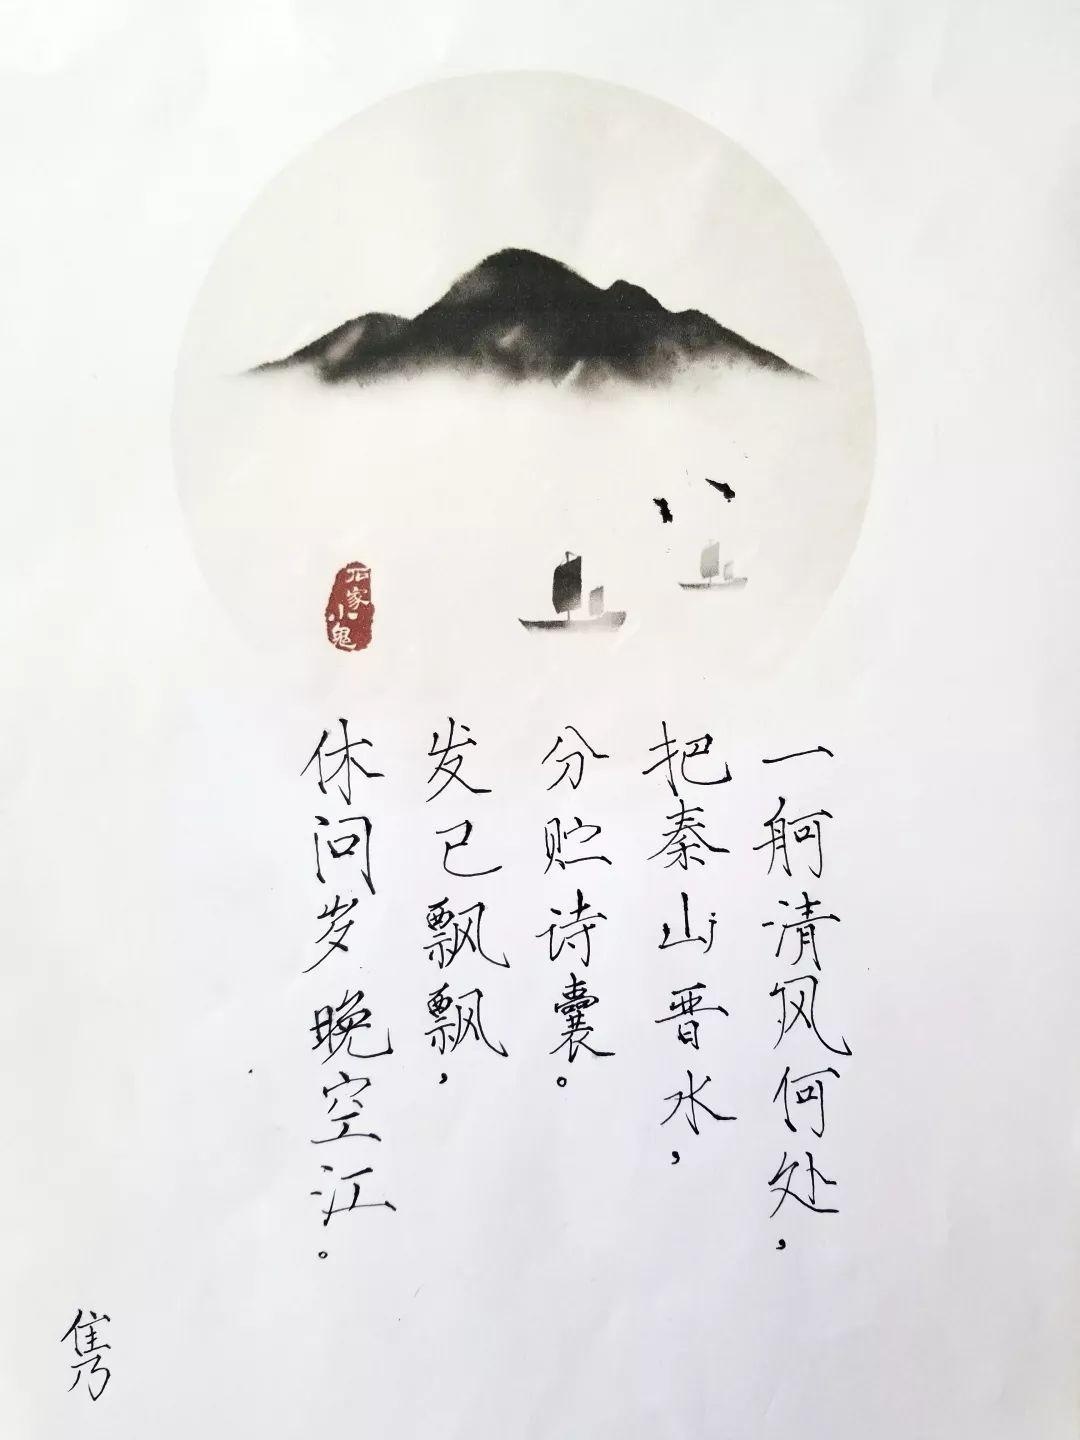 石家
小鬼
一舸清风何处，
把秦山晋水，
分贮诗囊。
发已飘飘，
休问岁晚空江。
隽